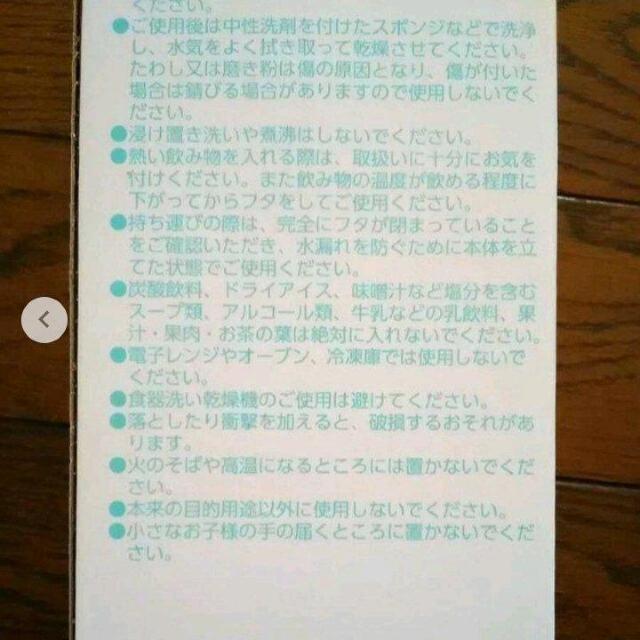 ください。
●ご使用後は中性洗剤を付けたスポンジなどで洗浄
し、水気をよく拭き取って乾燥させてください。
たわし又は磨き粉は傷の原因となり、傷が付いた
場合は錆びる場合がありますので使用しないでく
ださい。
●浸け置き洗いや煮沸はしないでください。
●熱い飲み物を入れる際は、取扱いに十分にお気を
付けください。また飲み物の温度が飲める程度に
下がってからフタをしてご使用ください。
●持ち運びの際は、完全にフタが閉まっていること
をご確認いただき、水漏れを防ぐために本体を立
てた状態でご使用ください。
●炭酸飲料、ドライアイス、味噌汁など塩分を含む
スープ類、アルコール類、牛乳などの乳飲料、果
汁・果肉・お茶の葉は絶対に入れないでください。
●電子レンジやオーブン、冷凍庫では使用しないで
ください。
●食器洗い乾燥機のご使用は避けてください。
●落としたり衝撃を加えると、破損するおそれがあ
ります。
●火のそばや高温になるところには置かないでくだ
さい。
●本来の目的用途以外に使用しないでください。
●小さなお子様の手の届くところに置かないでくだ
さい。